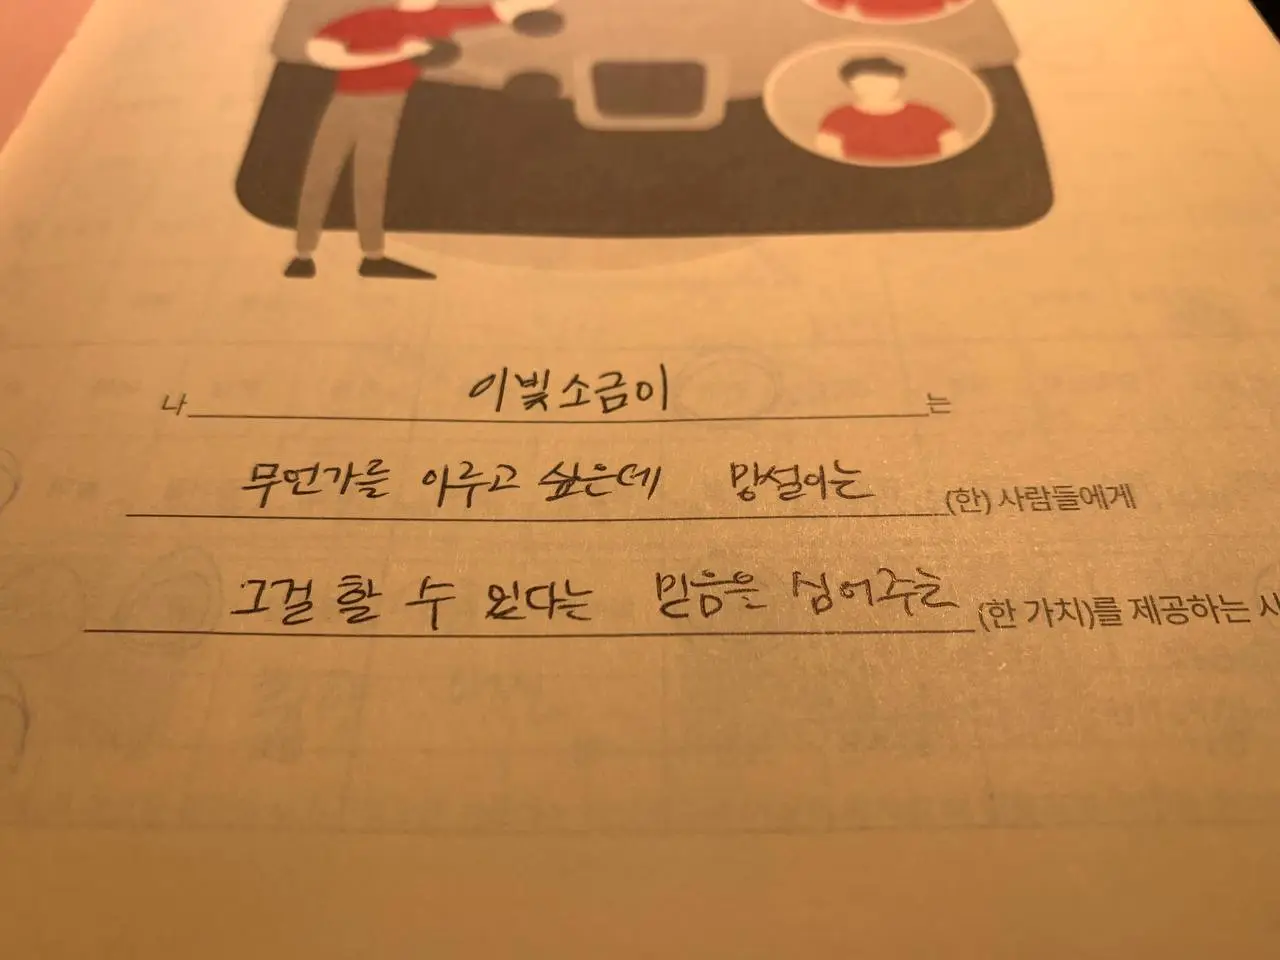 나 이빛소금이 는
무언가를 이루고 싶은데 망설이는 (한) 사람들에게
그걸 할 수 있다는 믿음을 심어주는 (한 가치)를 제공하는 사